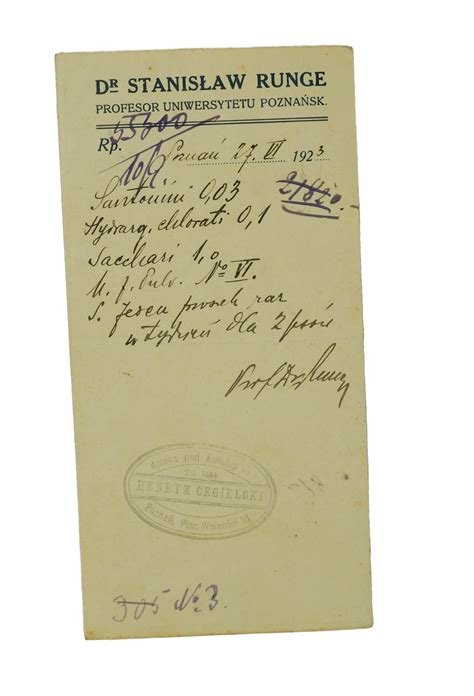 DR STANISŁAW RUNGE
PROFESOR UNIWERSYTETU POZNAŃSK.
55300
Rp.
Poznań 27. VI 1923
10/9
21820.-
Santonini 0,03
Hydrarg. chlorati 0,1
Sacchari 1,0
M. f. Pulv. No VI.
S. Jeden proszek raz
w tydzień dla 2 psów
Prof Dr Runge
Apteka pod Eskulapem
HENRYK CEGIELSKI
Poznań, Plac Wolności 13
305 No 3.